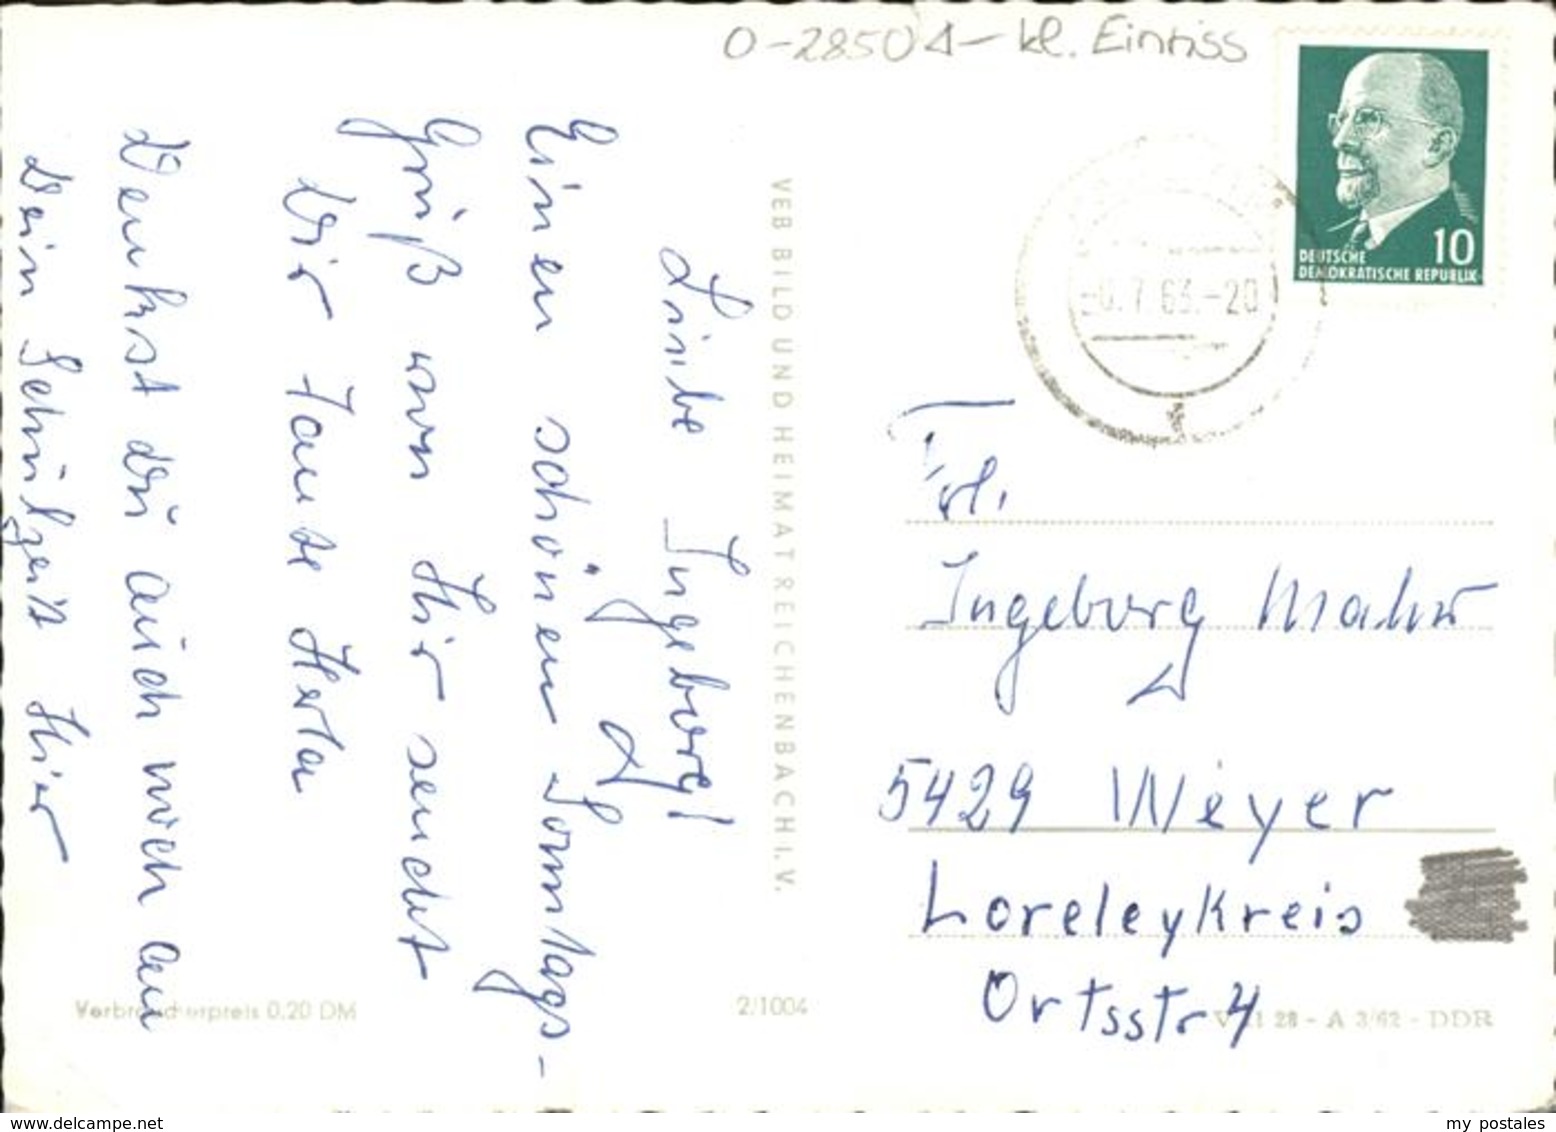 O-28501- kl. Einriss
DEUTSCHE
DEMOKRATISCHE REPUBLIK
10
7 63.-20
Liebe Ingeborg!
Einen schönen Sonntags-
Gruß von Hir sendet
Dir Tante Herta
Denkst du auch noch an
Dein Schulzeit Hier
VEB BILD UND HEIMAT REICHENBACH I.V.
Frl.
Ingeborg
5429 Weyer
Loreleykreis
Ortsstr 4
Verbraucherpreis 0,20 DM
2/1004
28 - A 3/62 - DDR
www.delcampe.net
my postales